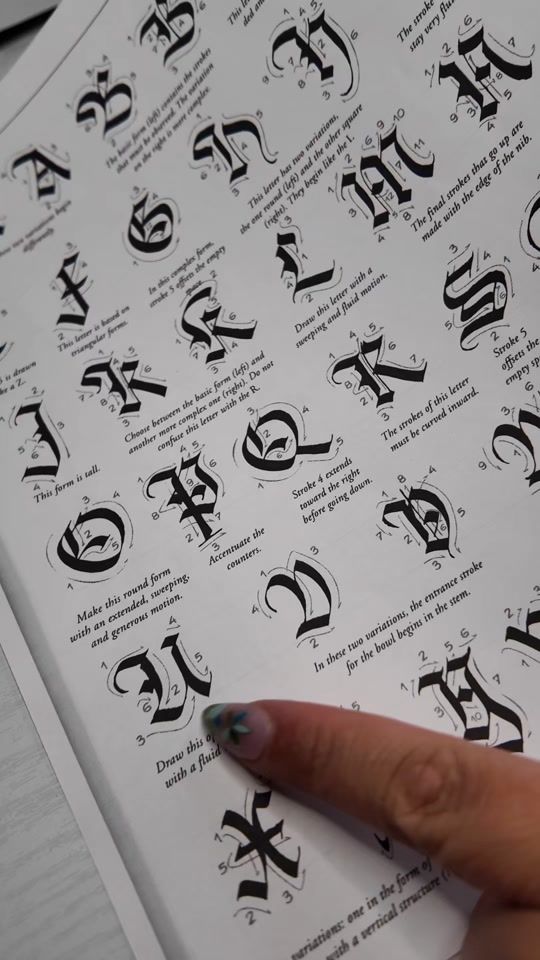 This le
ded an
The strokes
stay very flu
B
The basic form (left) contains the strokes
that must be observed. The variation
on the right is more complex.
A
differently.
H
This letter has two variations,
the one round (left) and the other square
(right). They begin like the I.
The final strokes that go up are
made with the edge of the nib.
M
G
In this complex form,
stroke 5 offsets the empty
space.
This letter is based on
triangular forms.
L
Draw this letter with a
sweeping and fluid motion.
S
Stroke 5
offsets the
empty sp
is drawn
e a Z.
K
K
Choose between the basic form (left) and
another more complex one (right). Do not
confuse this letter with the R.
R
The strokes of this letter
must be curved inward.
J
This form is tall.
O
Make this round form
with an extended, sweeping,
and generous motion.
P
Accentuate the
counters.
Q
Stroke 4 extends
toward the right
before going down.
In these two variations, the entrance stroke
for the bowl begins in the stem.
U
Draw this
with a fluid
X
variations: one in the form of
with a vertical structure